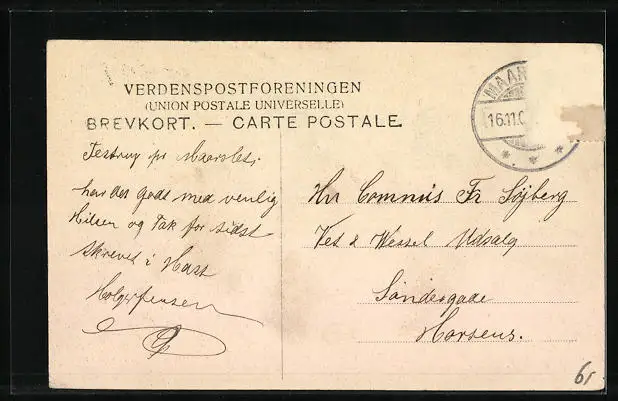 VERDENSPOSTFORENINGEN
(UNION POSTALE UNIVERSELLE)
BREVKORT. — CARTE POSTALE.
MAAR
16.11.0
Testrup pr Maarslet.
har det godt med venlig
Hilsen og Tak for sidst
skrevet i Hast
Holger Jensen
Hr Commis Fr Söjberg
Vett & Wessel Udsalg
Söndergade
Horsens.
61